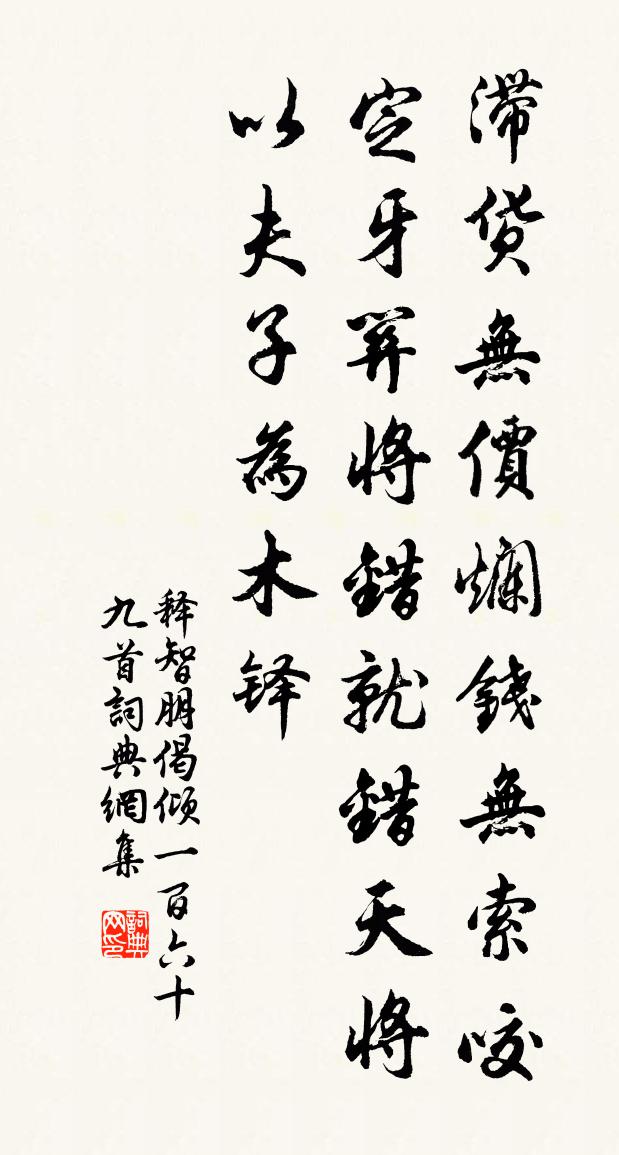 滯貨無價爛錢無索咬
定牙關將錯就錯天將
以夫子為木铎
释智朋偈倾一百六十
九首詞典網集
詞典网印